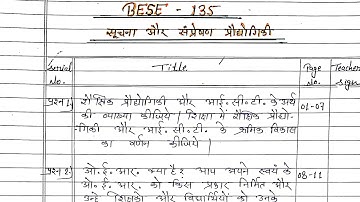 BESE - 135
सूचना और संप्रेषण प्रौद्योगिकी
Serial No. Title Page No. Teacher sign
प्रश्न 1) शैक्षिक प्रौद्योगिकी और आई.सी.टी. के अर्थ 01-07
की व्याख्या कीजिये। शिक्षा में शैक्षिक प्रौद्यो-
गिकी और आई.सी.टी. के क्रमिक विकास
का वर्णन कीजिये।
प्रश्न 2) ओ.ई.आर. क्या है? आप अपने स्वयं के 08-11
ओ.ई.आर. को किस प्रकार निर्मित और
उन्हें शिक्षकों और विद्यार्थियों को उनके